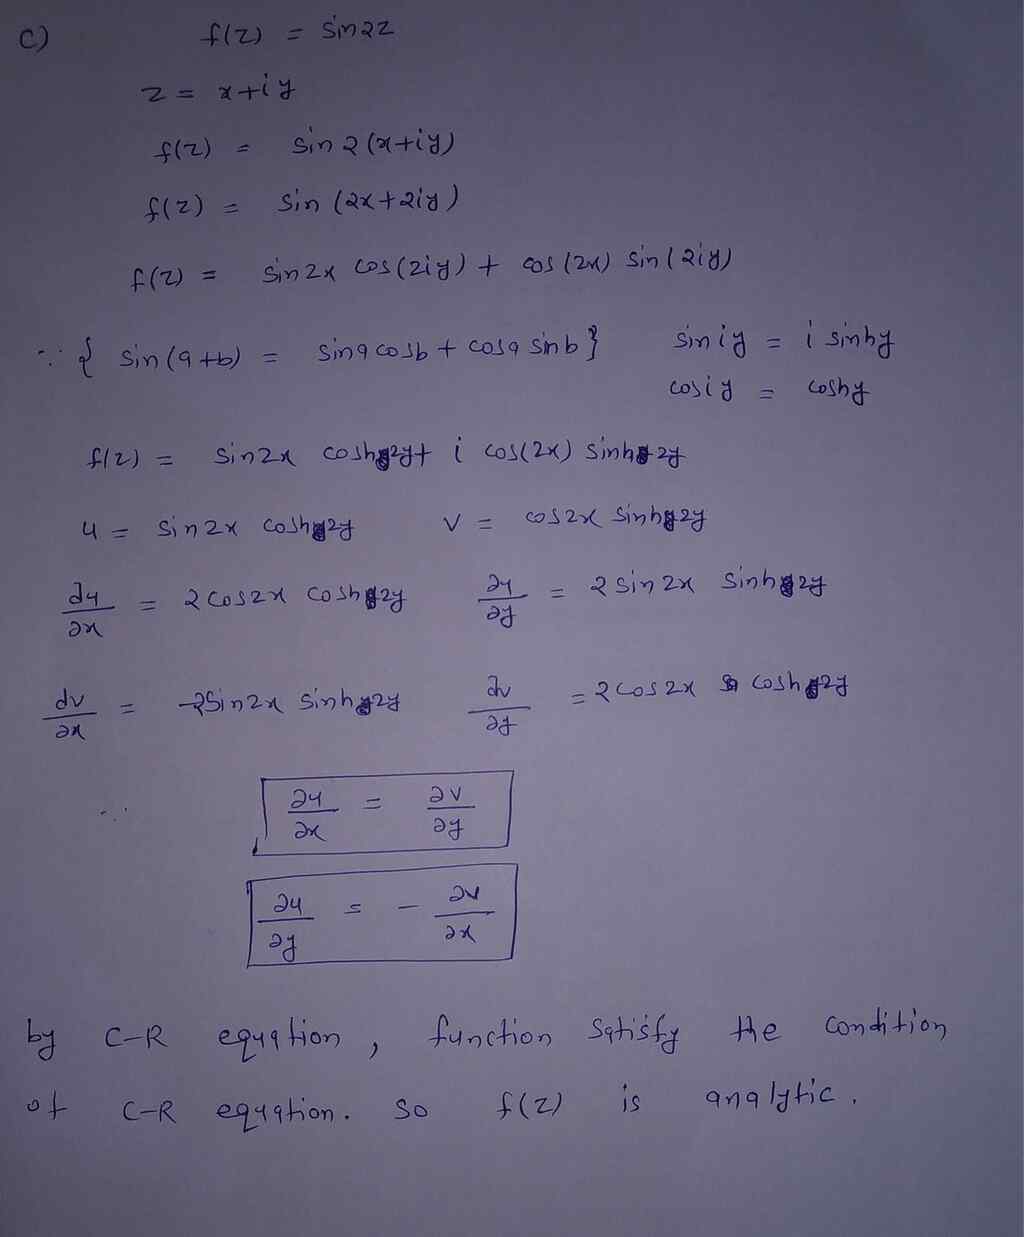 c) f(z) = sin2z
z = x+iy
f(z) = sin 2 (x+iy)
f(z) = sin (2x+2iy)
f(z) = sin2x cos(2iy) + cos(2x) sin(2iy)
∵ { sin(a+b) = sina cosb + cosa sinb } sin iy = i sinhy
cosiy = coshy
f(z) = sin2x cosh2y + i cos(2x) sinh2y
u = sin2x cosh2y v = cos2x sinh2y
∂u/∂x = 2cos2x cosh2y ∂u/∂y = 2 sin2x sinh2y
∂v/∂x = -2sin2x sinh2y ∂v/∂y = 2cos2x cosh2y
∴ ∂u/∂x = ∂v/∂y
∂u/∂y = - ∂v/∂x
by C-R equation, function satisfy the condition
of C-R equation. so f(z) is analytic.